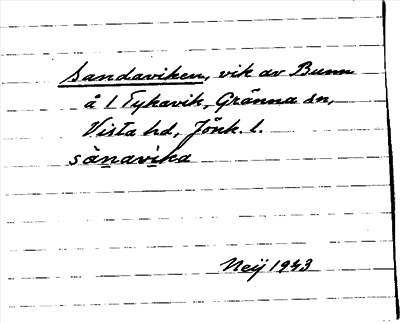 Sandaviken, vik av Bunn
å l Tykavik, Gränna sn,
Vista hd, Jönk. l.
sànavika
Neij 1943